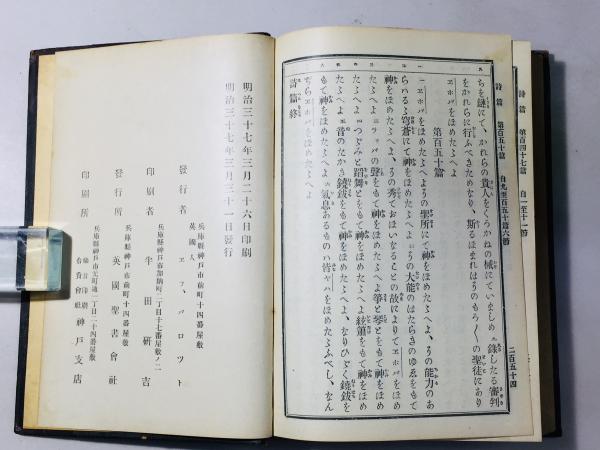 詩篇 第百四十七篇 自一至十一節
詩篇 第百五十篇 自九至百五十篇六節
二百五十四
ちを鏈にて、かれらの貴人をくろがねの械にていましめ 九 錄したる審判
をかれらに行ふべきためなり、斯るほまれはそのもろ〳〵の聖徒にあり
ヱホバをほめたゝへよ
第百五十篇
一 ヱホバをほめたゝへよその聖所にて神をほめたゝへよ、その能力のあ
らはるゝ穹蒼にて神をほめたゝへよ 二 その大能のはたらきのゆゑをもて
神をほめたゝへよ、その秀ておほいなることの故によりてヱホバをほめ
たゝへよ 三 ラッパの聲をもて神をほめたゝへよ、箏と琴とをもて神をほめ
たゝへよ 四 つゞみと蹈舞とをもて神をほめたゝへよ、絃簫をもて神をほめ
たゝへよ 五 音のたかき鐃鈸をもて神をほめたゝへよ、なりひゞく鐃鈸を
もて神をほめたゝへよ 六 氣息あるものは皆ヤハをほめたゝふべし、なん
ぢらヱホバをほめたゝへよ
詩篇終
明治三十七年三月二十六日印刷
明治三十七年三月三十一日發行
兵庫縣神戸市前町十四番屋敷
英國人
發行者 ヱフ、パロット
兵庫縣神戸市加納町二丁目十七番屋敷ノ二
印刷者 牛田研吉
兵庫縣神戸市前町十四番屋敷
發行所 英國聖書會社
兵庫縣神戸市元町通二丁目二十四番屋敷
印刷所 合資會社 福音印刷 神戸支店